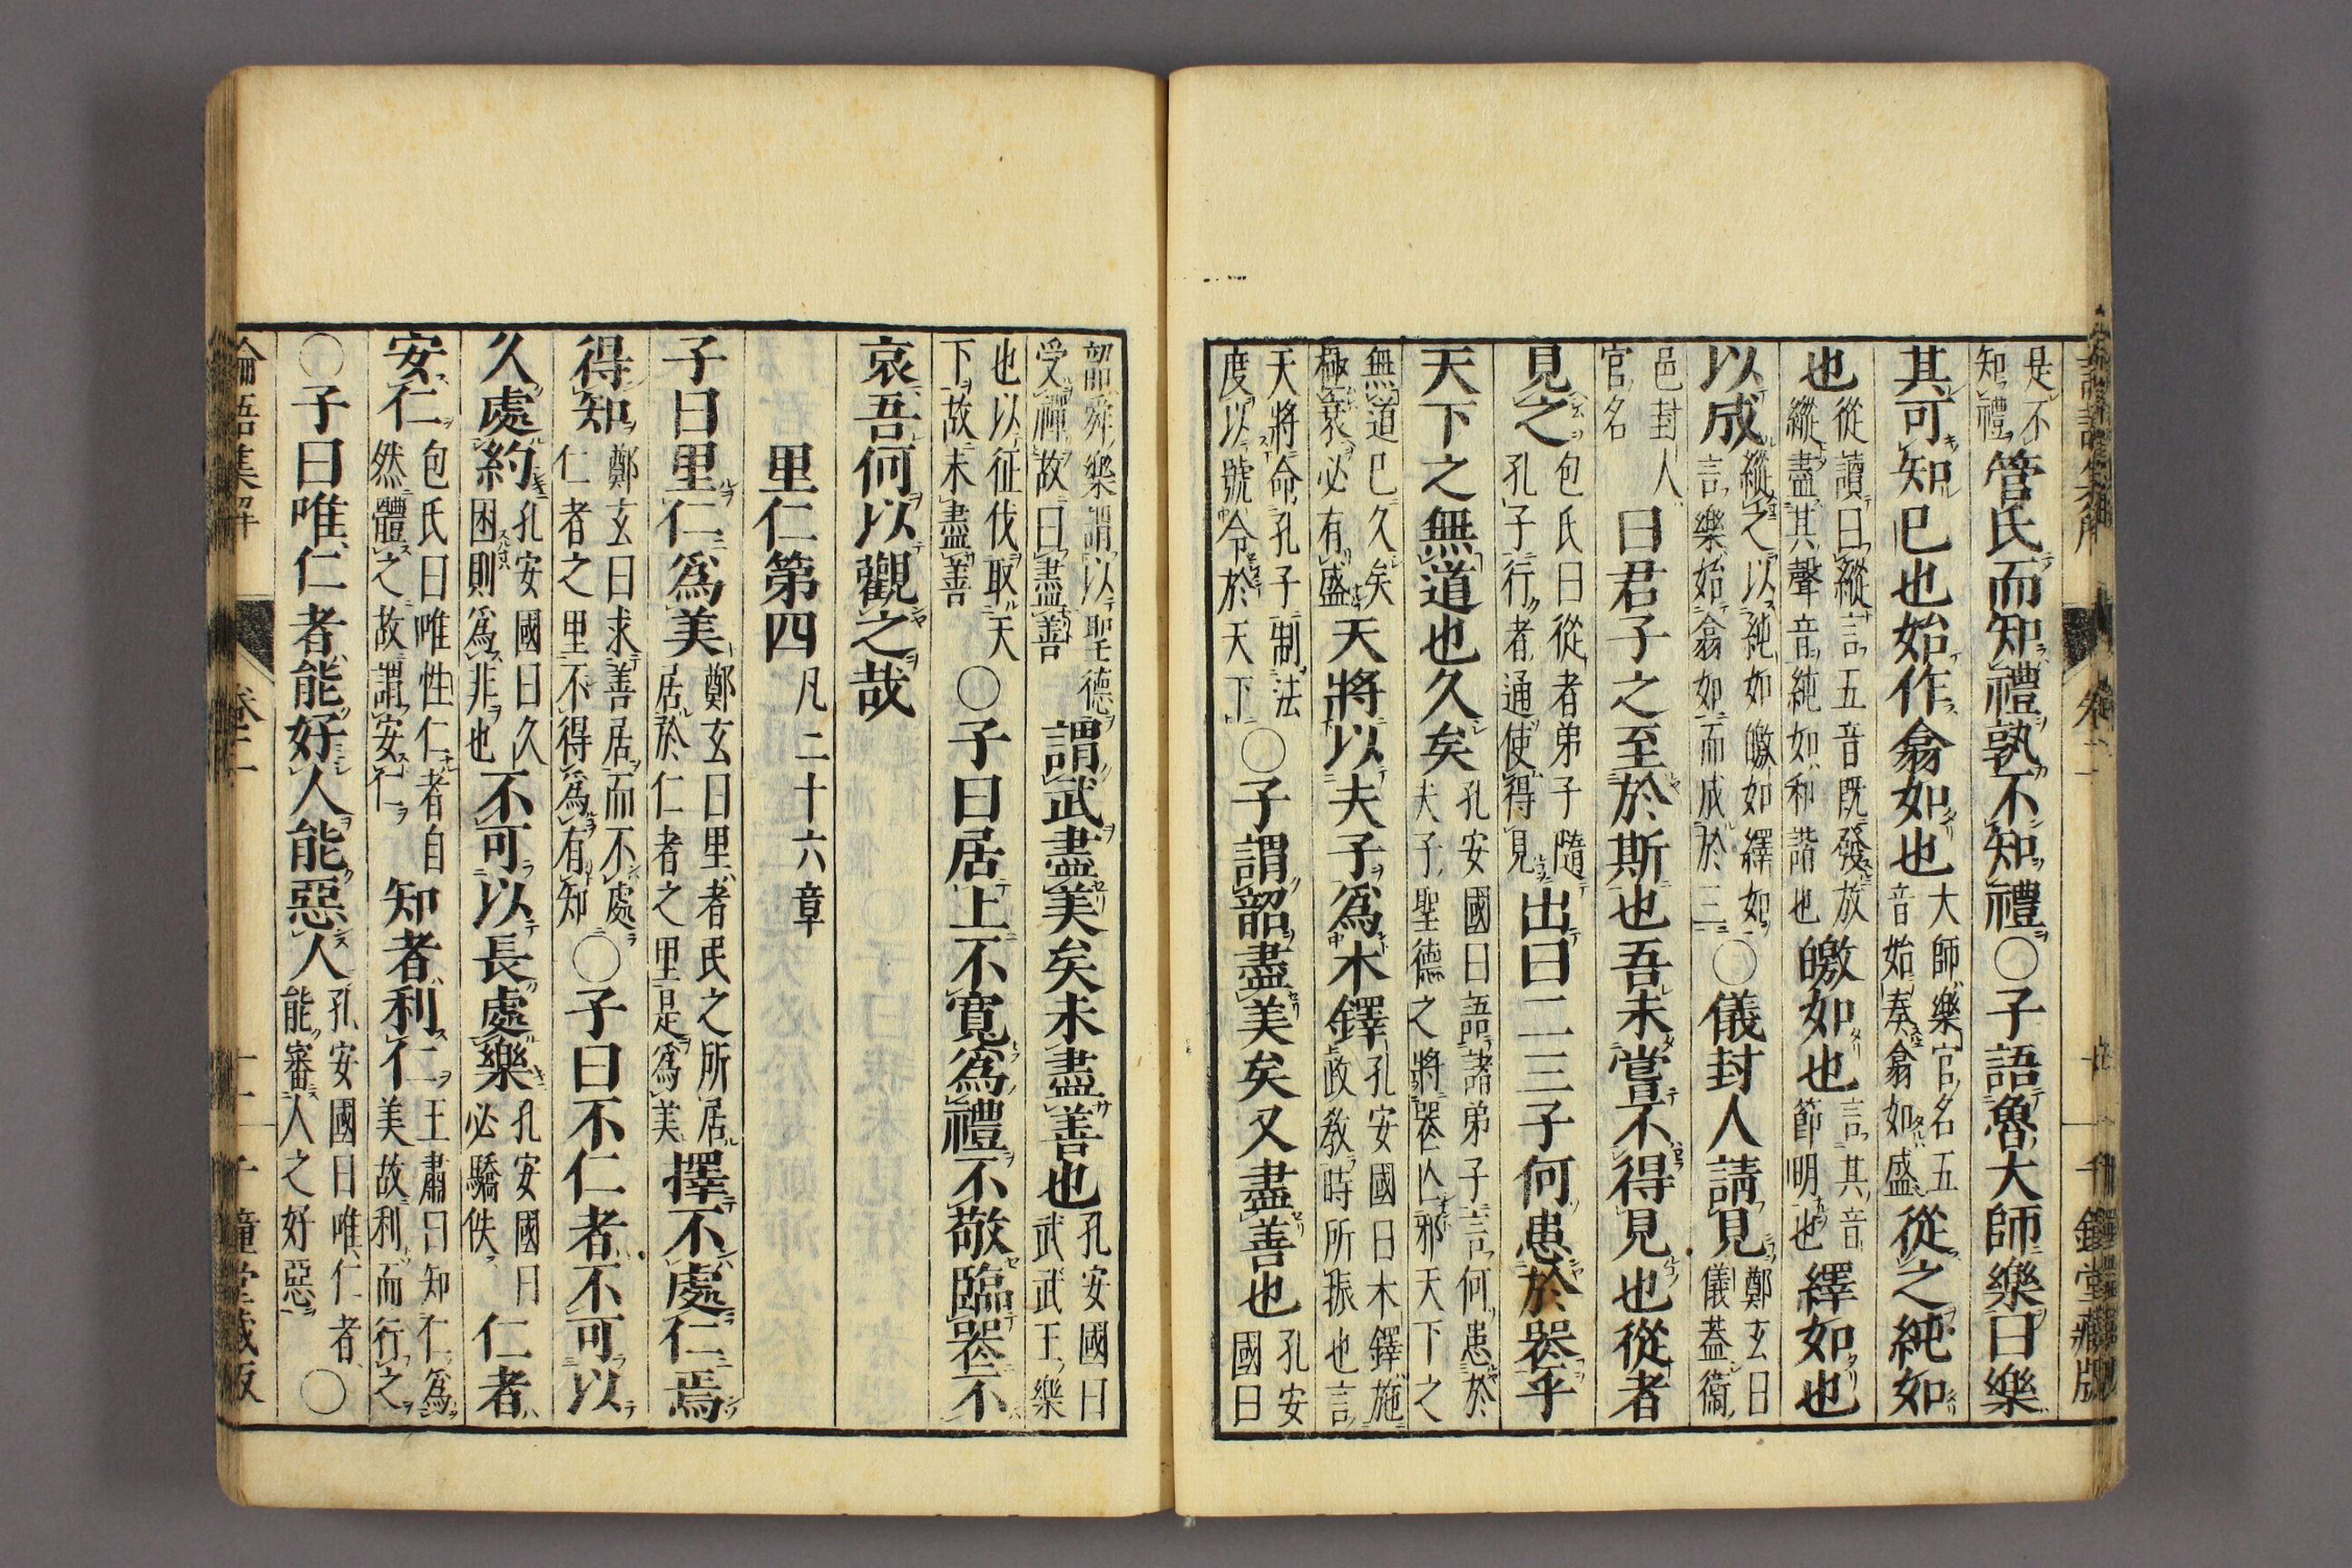 是不知禮管氏而知禮孰不知禮〇子語魯大師樂曰樂
其可知巳也始作翕如也大師樂官名五音始奏翕如盛從之純如
也從讀曰縱言五音既發放縱盡其聲音純如和諧也皦如也言其音節明也繹如也
以成縱之以純如皦如繹如言樂始翕如而成於三〇儀封人請見鄭玄曰儀蓋衞
邑封人官名曰君子之至於斯也吾未嘗不得見也從者
見之包氏曰從者弟子隨孔子行者通使得見出曰二三子何患於喪乎
天下之無道也久矣孔安國曰語諸弟子言何患於夫子聖德之將喪亡邪天下之
無道已久矣極衰必有盛天將以夫子爲木鐸孔安國曰木鐸施政教時所振也言
天將命孔子制法度以號令於天下〇子謂韶盡美矣又盡善也孔安國曰
韶舜樂謂以聖德受禪故曰盡善謂武盡美矣未盡善也孔安國曰武武王樂
也以征伐取天下故未盡善〇子曰居上不寬爲禮不敬臨喪不
哀吾何以觀之哉
里仁第四凡二十六章
子曰里仁爲美鄭玄曰里者民之所居居於仁者之里是爲美擇不處仁焉
得知鄭玄曰求善居而不處仁者之里不得爲有知〇子曰不仁者不可以
久處約孔安國曰久困則爲非也不可以長處樂孔安國曰必驕佚仁者
安仁包氏曰唯性仁者自然體之故謂安仁知者利仁王肅曰知仁爲美故利而行之
〇子曰唯仁者能好人能惡人孔安國曰唯仁者能審人之好惡〇
論語集解 卷二 十二 千鐘堂藏版